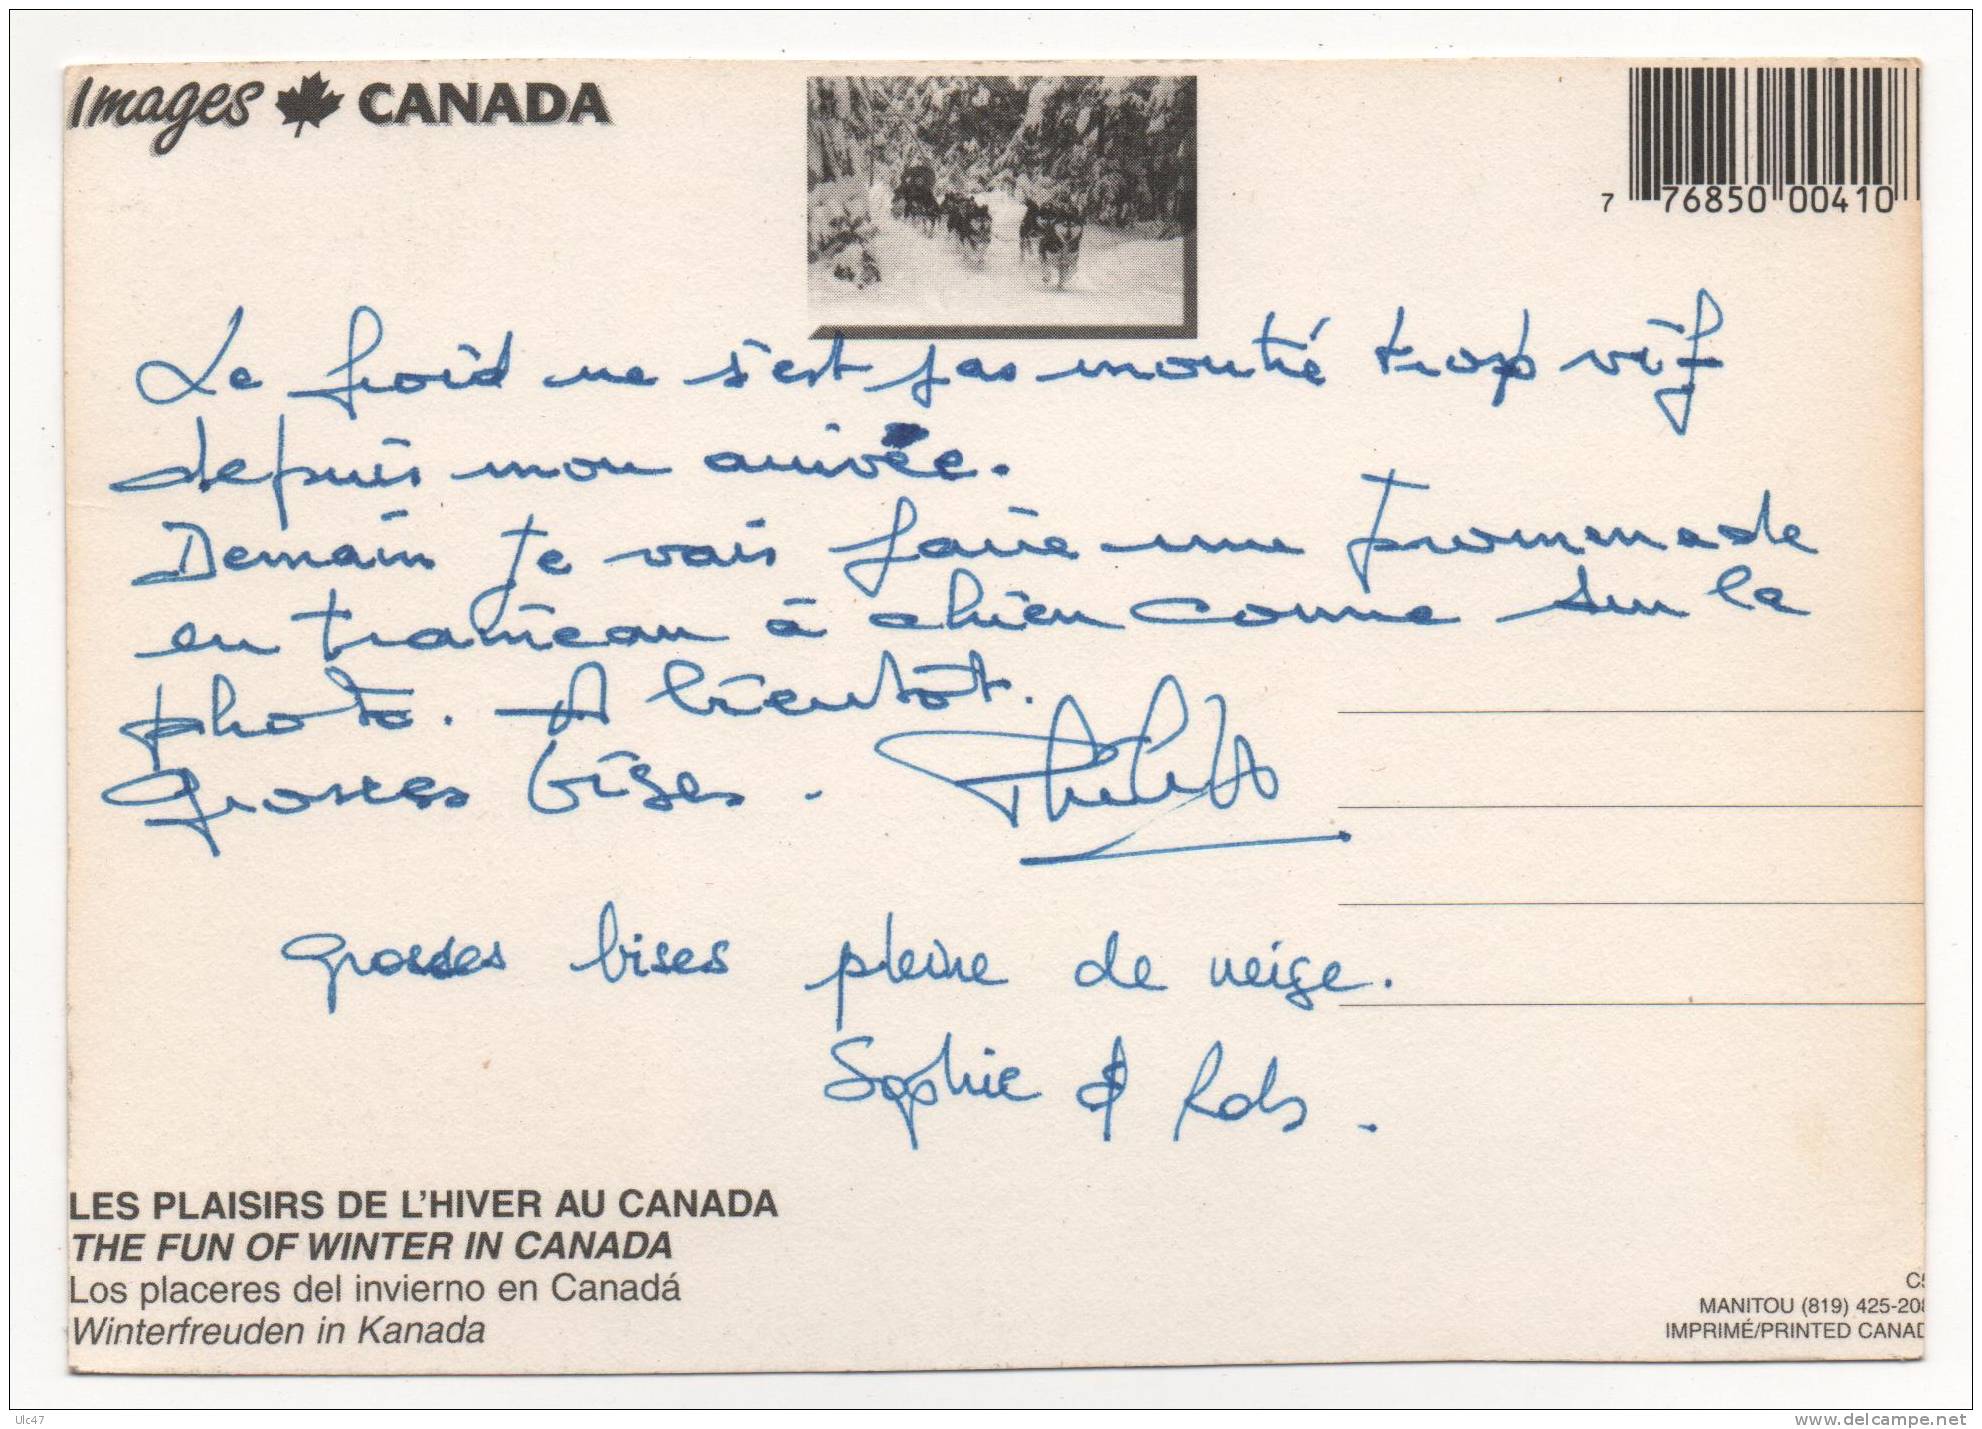 Images CANADA
7 76850 00410
Le froid ne s'est pas montré trop vif
depuis mon arrivée.
Demain je vais faire une promenade
en traîneau à chien comme sur la
photo. A bientôt.
Grosses bises.
Grosses bises pleine de neige.
Sophie & Rob.
LES PLAISIRS DE L'HIVER AU CANADA
THE FUN OF WINTER IN CANADA
Los placeres del invierno en Canadá
Winterfreuden in Kanada
MANITOU (819) 425-208
IMPRIMÉ/PRINTED CANAD
Ulc47
www.delcampe.net